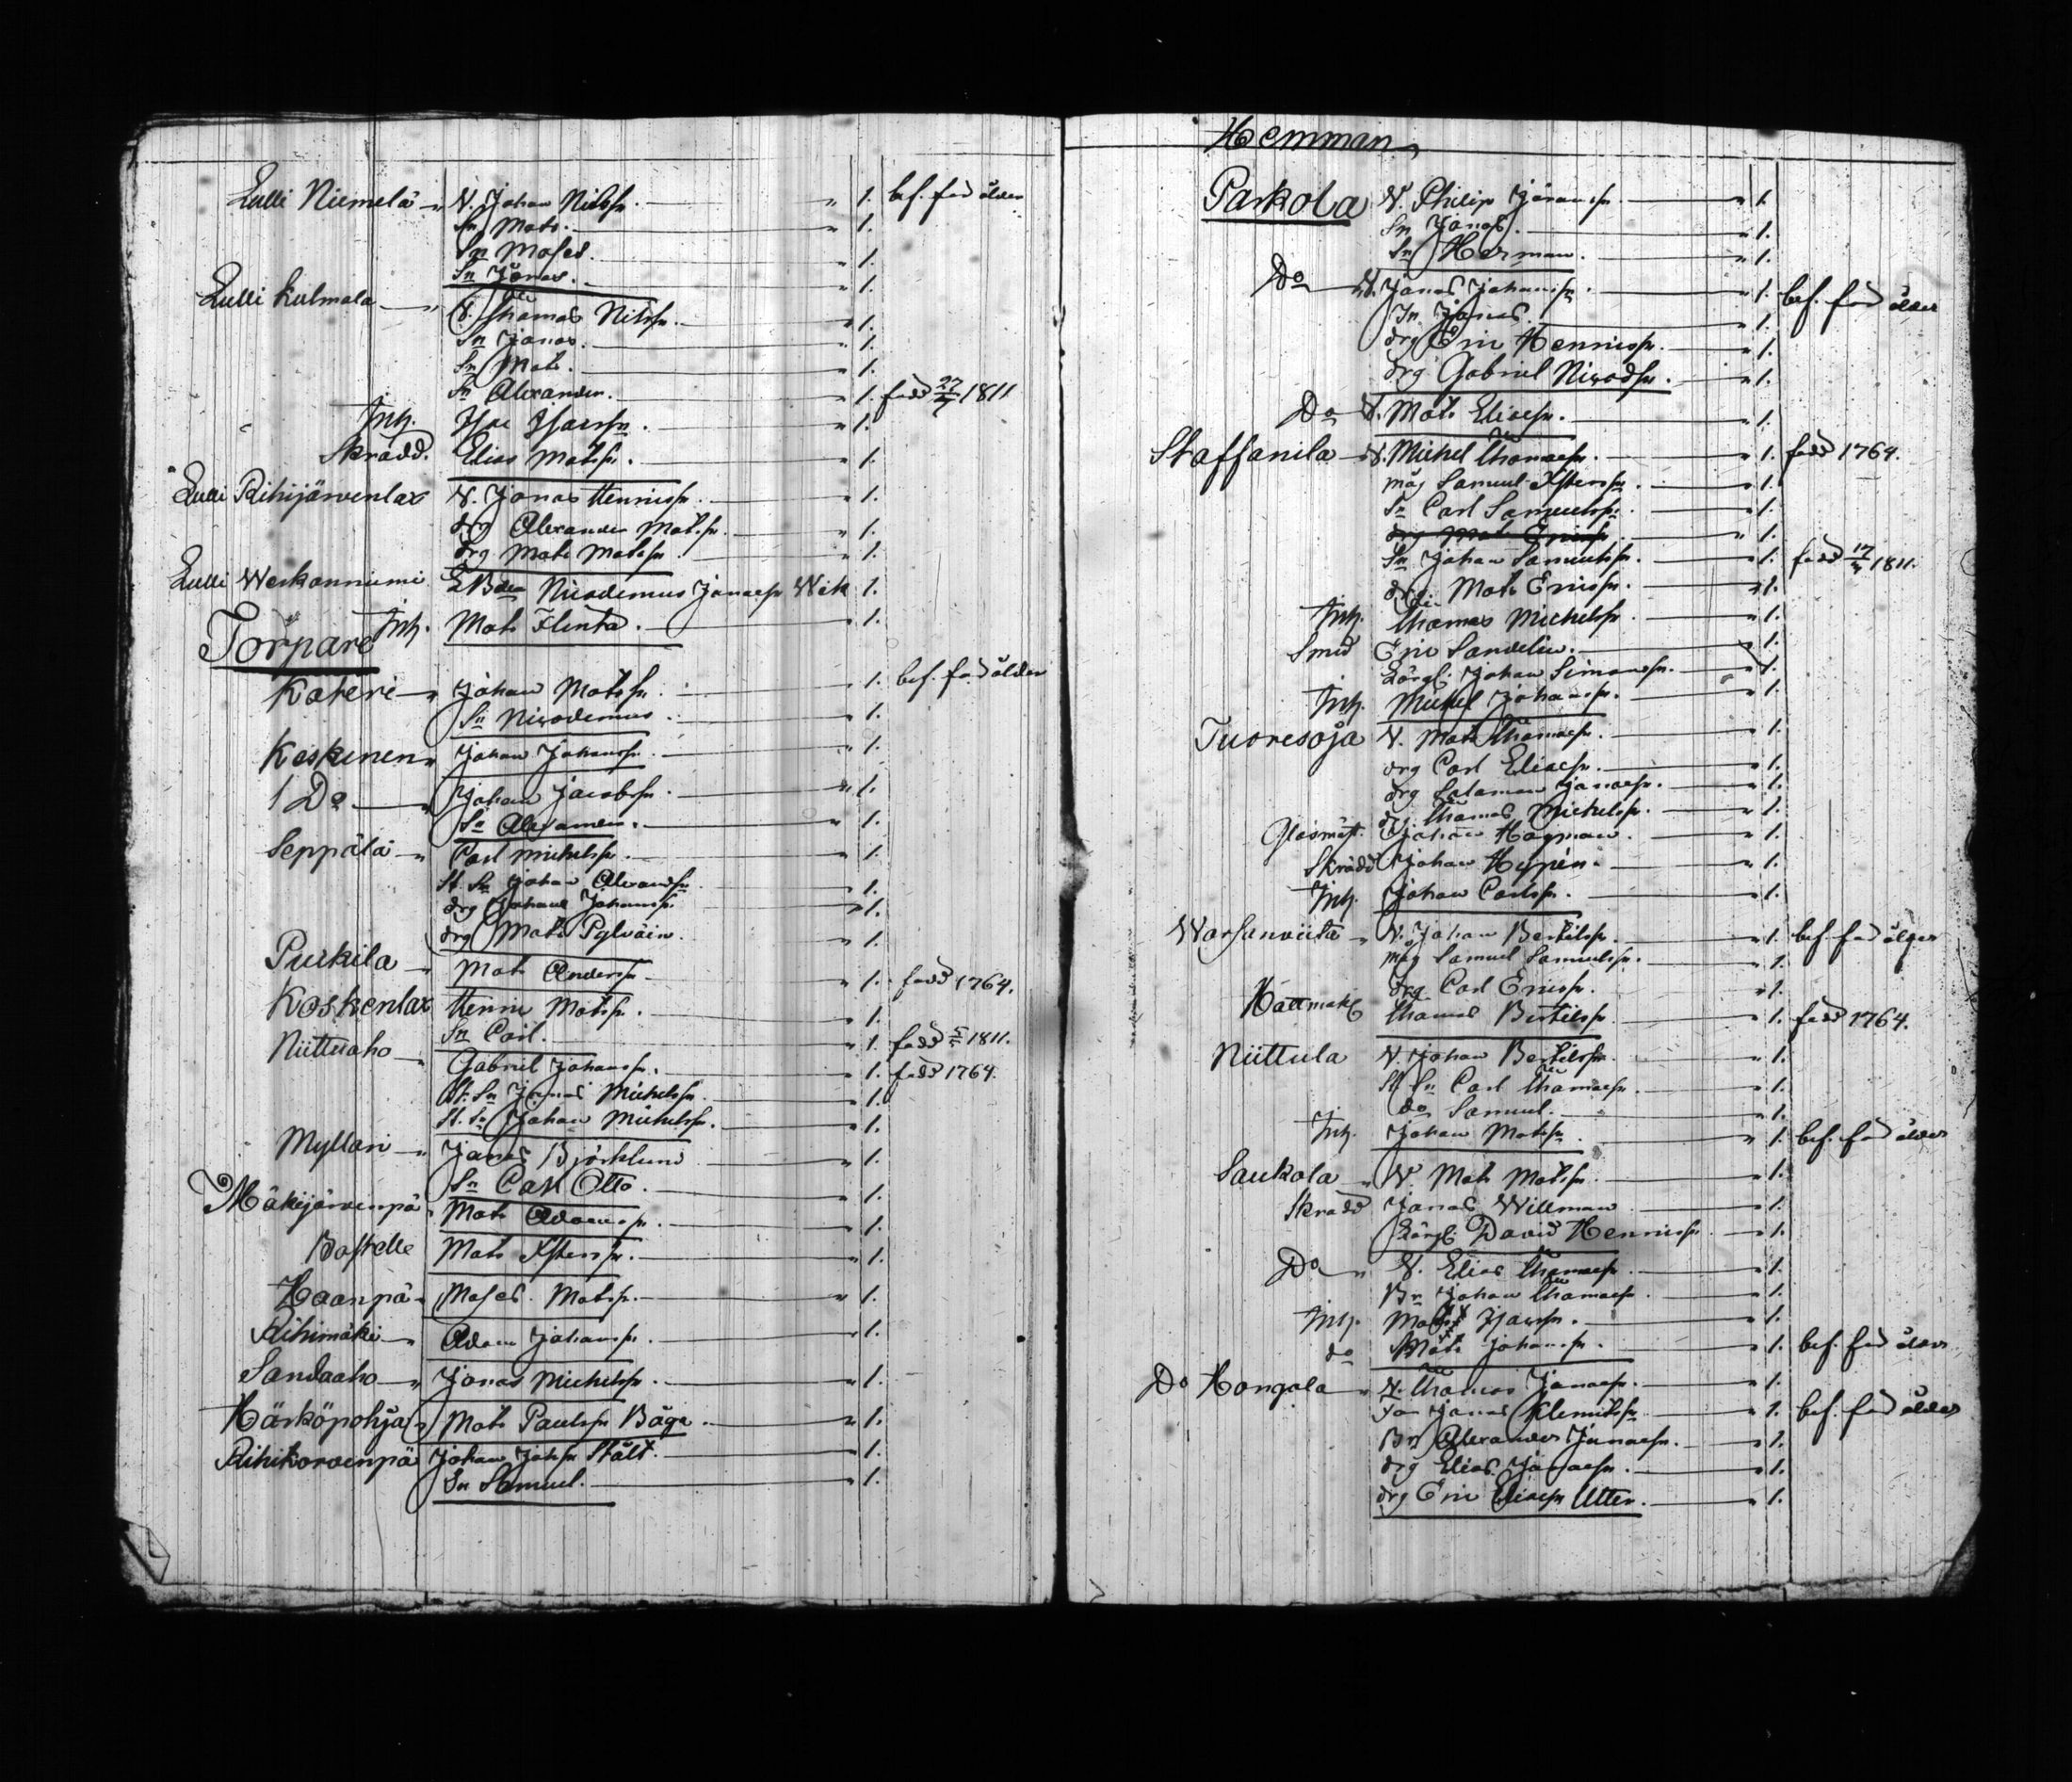 Lulli Niemelä " N. Johan Nilsſn. " 1. bef. för ålder
Sn Mats. " 1.
Sn Moſes. " 1.
Sn Jonas. " 1.
Lulli Kulmala " N. Thomas Nilsſn. " 1.
Sn Jonas. " 1.
Sn Mats. " 1.
Sn Alexander. " 1. född 27/7 1811
Inh. Isac Isacsſn. " 1.
Skrädd. Elias Matsſn. " 1.
Lulli Rihijärvenlax N. Jonas Henricsſn. " 1.
drg Alexander Matsſn. " 1.
drg Mats Matsſn. " 1.
Lulli Werkanniemi Nicodemus Jonaeſn Wek 1.
Inh. Mats Flinta. " 1.
Torpare
Kateri " Johan Matsſn. 1. bef. för ålder
Sn Nicodemus. " 1.
Keskinen " Johan Johansſn. " 1.
1 Do " Johan Jacobsſn. " 1.
Sn Alexander. " 1.
Seppälä " Carl Michelsſn. " 1.
St. Sn Johan Alexandſn " 1.
drg Johan Johansſn. " 1.
drg Mats Pylväin. " 1.
Purkila " Mats Andersſn. " 1. född 1764.
Koskenlax Henric Matsſn. " 1.
Sn Carl. " 1. född 5/5 1811.
Niittuaho " Gabriel Johansſn. " 1. född 1764.
St. Sn Jonas Michelsſn. " 1.
St. Sn Johan Michelsſn. " 1.
Myllari " Jonas Björklund " 1.
Sn Carl Otto. " 1.
Mäkijärvenpä Mats Adamsſn. " 1.
Boſtelle Mats Ystersſn. " 1.
Haanpä " Moſes Matsſn. " 1.
Rihimäki " Adam Johansſn. " 1.
Sandaaho " Jonas Michelsſn. " 1.
Härköpohja " Mats Paulsſn Båga. " 1.
Rihikorvenpä Johan Johsſn Stålt. " 1.
Sn Samuel. " 1.
Hemman
Parkola N. Philip Göransſn. " 1.
Sn Jonas. " 1.
Sn Herman. " 1.
Do " N. Jonas Johansſn. " 1. bef. för ålder
Sn Jonas. " 1.
drg Eric Henricsſn. " 1.
drg Gabriel Nicodſn. " 1.
Do N. Mats Eliaeſn. " 1.
Staffanila N. Michel Thomaeſn. " 1. född 1764.
måg Samuel Ystersſn. " 1.
Sn Carl Samuelsſn. " 1.
drg Mats Ericsſn " 1.
Sn Johan Samuelsſn. " 1. född 1811.
drg. Mats Ericsſn. " 1.
Inh. Thomas Michelsſn. " 1.
Smed Eric Sandelin. " 1.
Lärgl. Johan Simonsſn. " 1.
Inh. Michel Johansſn. " 1.
Tuoresoja N. Mats Thomaeſn. " 1.
drg Carl Eliaeſn. " 1.
drg Salamon Jonaeſn. " 1.
drg. Thomas Michelsſn. " 1.
Glasmäſt. Johan Hagman. " 1.
Skrädd Johan Heppén. " 1.
Inh. Johan Carlsſn. " 1.
Warſanviita " N. Johan Bertilsſn. " 1. bef. för ålder
måg Samuel Samuelsſn. " 1.
drg Carl Ericsſn. " 1.
Hattmak Thomas Bertilsſn. " 1. född 1764.
Niittula N. Johan Bertilsſn. " 1.
St Sn Carl Thomaeſn. " 1.
do Samuel. " 1.
Inh. Johan Matsſn " 1. bef. för ålder
Saukola " N. Mats Matsſn. " 1.
Skrädd Jonas Willman " 1.
Lärgl. David Henricsſn. " 1.
Do " N. Elias Thomaeſn. " 1.
Br Johan Thomaeſn. " 1.
Inh. Mats Isacsſn. " 1.
do Mats Johansſn. " 1. bef. för ålder
Do Hangala " N. Thomas Jonaeſn. " 1.
Jonas Klemetsſn. " 1. bef. för ålder
Br Alexander Jonaeſn. " 1.
drg Elias Jonaeſn. " 1.
drg Eric Eliaeſn Utter. " 1.